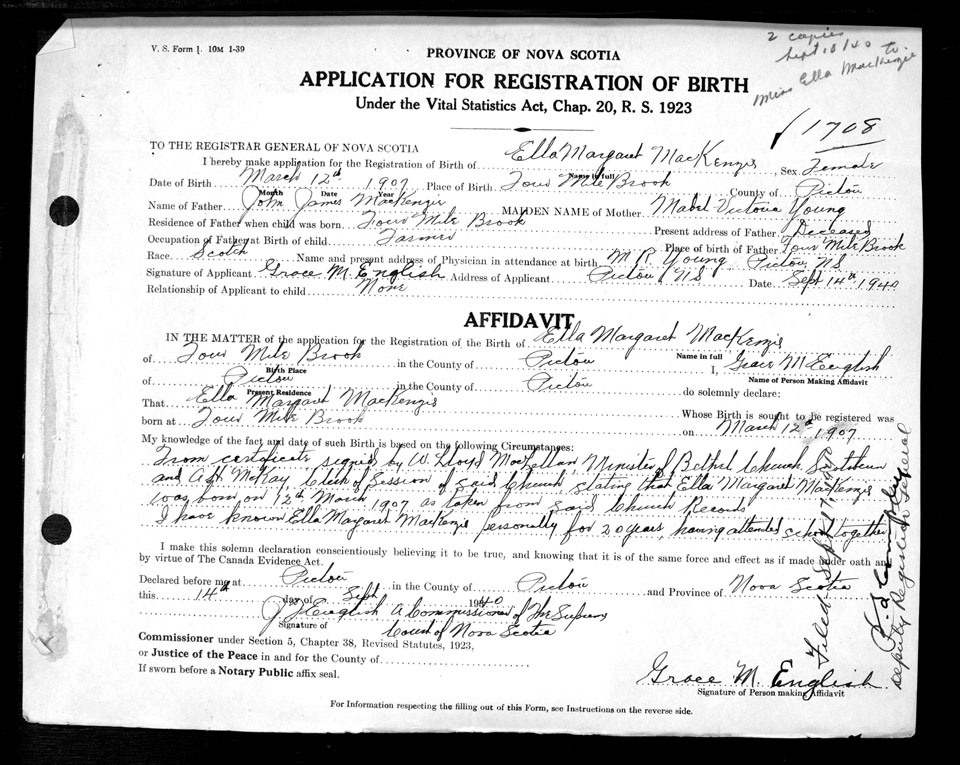 V. S. Form 1. 10M 1-39
2 copies
Sept 18/40 to
Miss Ella MacKenzie
PROVINCE OF NOVA SCOTIA
APPLICATION FOR REGISTRATION OF BIRTH
Under the Vital Statistics Act, Chap. 20, R. S. 1923
√ 1708
TO THE REGISTRAR GENERAL OF NOVA SCOTIA
I hereby make application for the Registration of Birth of Ella Margaret MacKenzie Sex Female
Name in full
Date of Birth March 12th 1907 Place of Birth Four Mile Brook County of Pictou
Month Date Year
Name of Father John James MacKenzie MAIDEN NAME of Mother Mabel Victoria Young
Residence of Father when child was born Four Mile Brook Present address of Father Deceased
Occupation of Father at Birth of child Farmer Place of birth of Father Four Mile Brook
Race Scotch Name and present address of Physician in attendance at birth M R Young Pictou, NS
Signature of Applicant Grace M. English Address of Applicant Pictou NS Date Sept 14th 1940
Relationship of Applicant to child None
AFFIDAVIT
IN THE MATTER of the application for the Registration of the Birth of Ella Margaret MacKenzie
Name in full
of Four Mile Brook in the County of Pictou I, Grace M English
Birth Place
Name of Person Making Affidavit
of Pictou in the County of Pictou do solemnly declare:
Present Residence
That Ella Margaret MacKenzie Whose Birth is sought to be registered was
born at Four Mile Brook on March 12th 1907
My knowledge of the fact and date of such Birth is based on the following Circumstances:
From certificate signed by W. Lloyd MacLellan Minister of Bethel Church, Scotsburn
and A H McKay, Clerk of Session of said Church, stating that Ella Margaret MacKenzie
was born on 12th March 1907 as taken from said Church Records
I have known Ella Margaret MacKenzie personally for 20 years, having attended school together
I make this solemn declaration conscientiously believing it to be true, and knowing that it is of the same force and effect as if made under oath and
by virtue of The Canada Evidence Act.
Declared before me at Pictou in the County of Pictou and Province of Nova Scotia
this 14th day of Sept 1940
J English A Commissioner of The Supreme
Signature of Court of Nova Scotia
Commissioner under Section 5, Chapter 38, Revised Statutes, 1923,
or Justice of the Peace in and for the County of
If sworn before a Notary Public affix seal.
Grace M. English
Signature of Person making Affidavit
For Information respecting the filling out of this Form, see Instructions on the reverse side.
Filed Sept 17, 1940
Deputy Registrar General